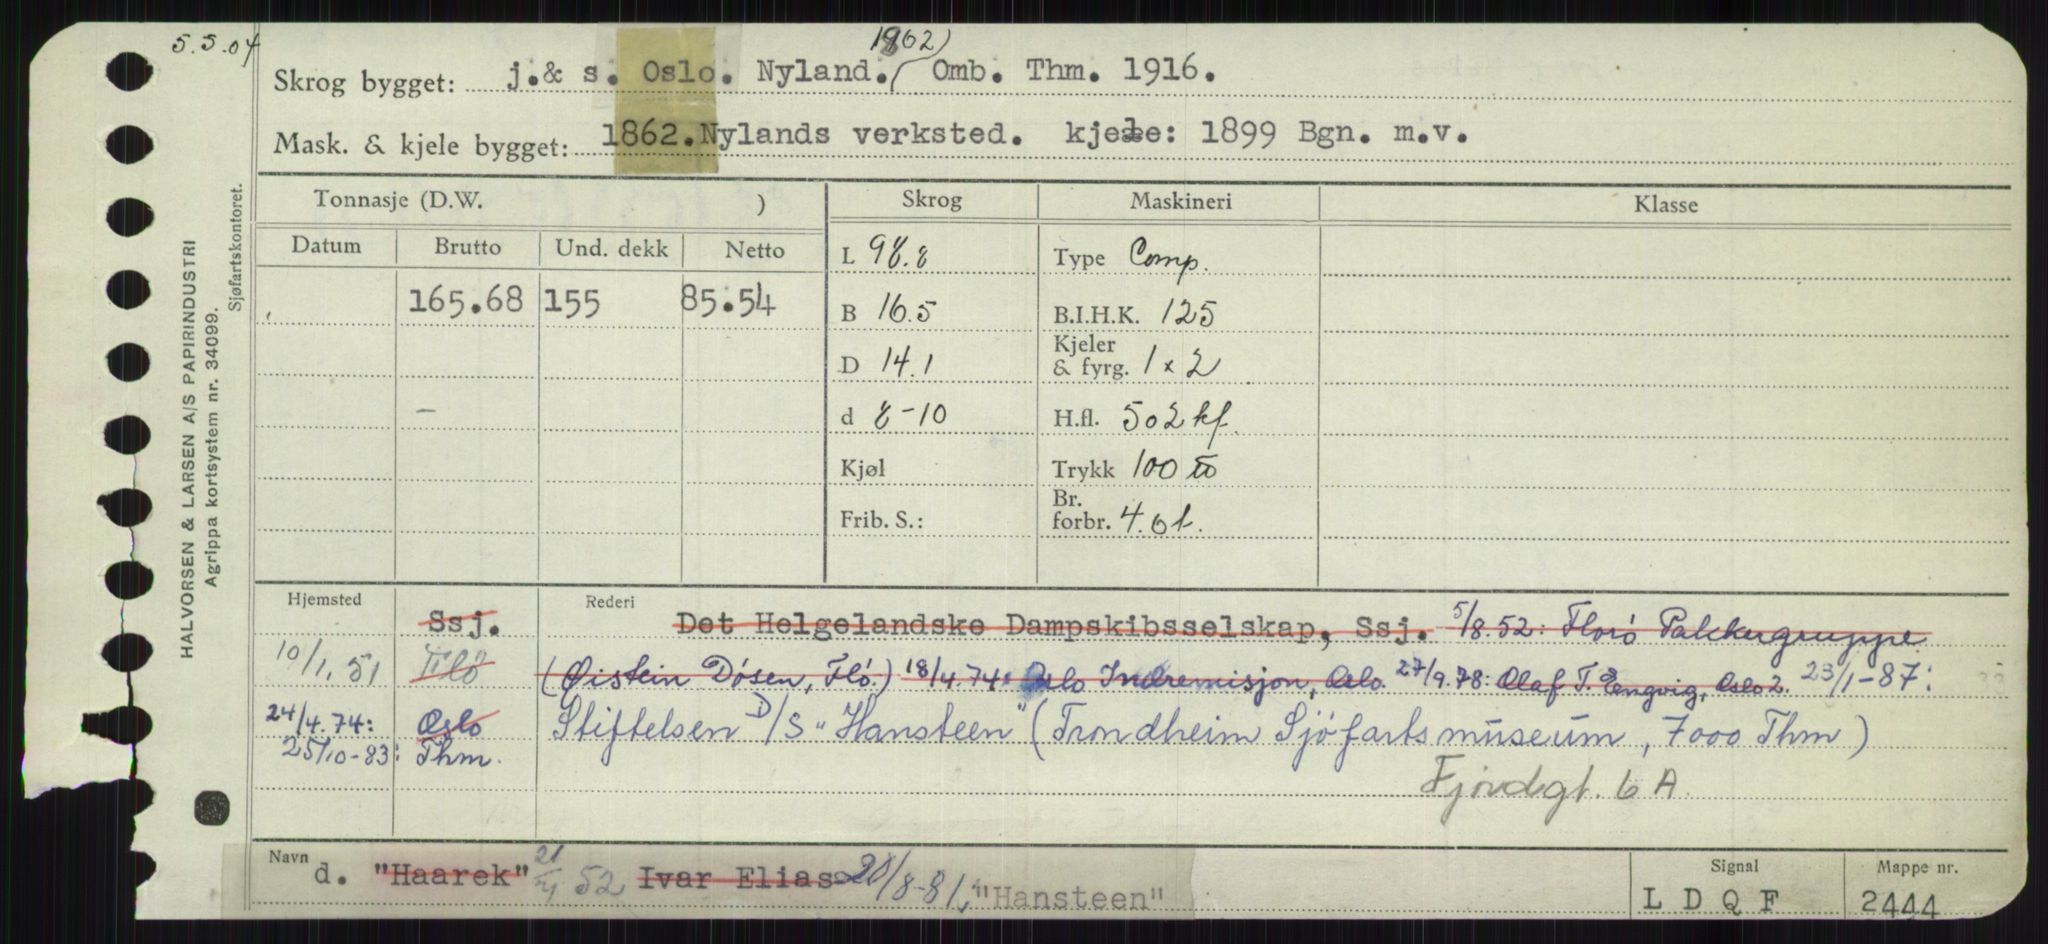 5.5.04
1862)
Skrog bygget: j.& s. Oslo. Nyland. ( Omb. Thm. 1916.
Mask. & kjele bygget: 1862. Nylands verksted. kjele: 1899 Bgn. m.v.
Tonnasje (D.W. ) Skrog Maskineri Klasse
Datum Brutto Und. dekk Netto
L 98.8 Type Comp.
165.68 155 85.54 B 16.5 B.I.H.K. 125
D 14.1 Kjeler & fyrg. 1 x 2
– d 8-10 H.fl. 502 kf.
Kjøl Trykk 100 to
Frib. S.: Br. forbr. 4.0 t.
HALVORSEN & LARSEN A/S PAPIRINDUSTRI
Agrippa kortsystem nr. 34099.
Sjøfartskontoret.
Hjemsted Rederi
Ssj. Det Helgelandske Dampskibsselskap, Ssj. 5/8.52: Florö Pakkergruppe
10/1.51 Flö (Øistein Døsen, Flö.) 18/4.74: Oslo Indremisjon, Oslo. 27/9.78: Olaf T. Engvig, Oslo 2. 23/1-87:
24/4.74: Oslo Stiftelsen D/S "Hansteen" (Trondheim Sjöfartsmuseum, 7000 Thm)
25/10-83: Thm.
Fjordgt. 6 A
Navn d. "Haarek" 52 Ivar Elias 20/8-81, "Hansteen"
Signal L D Q F
Mappe nr. 2444